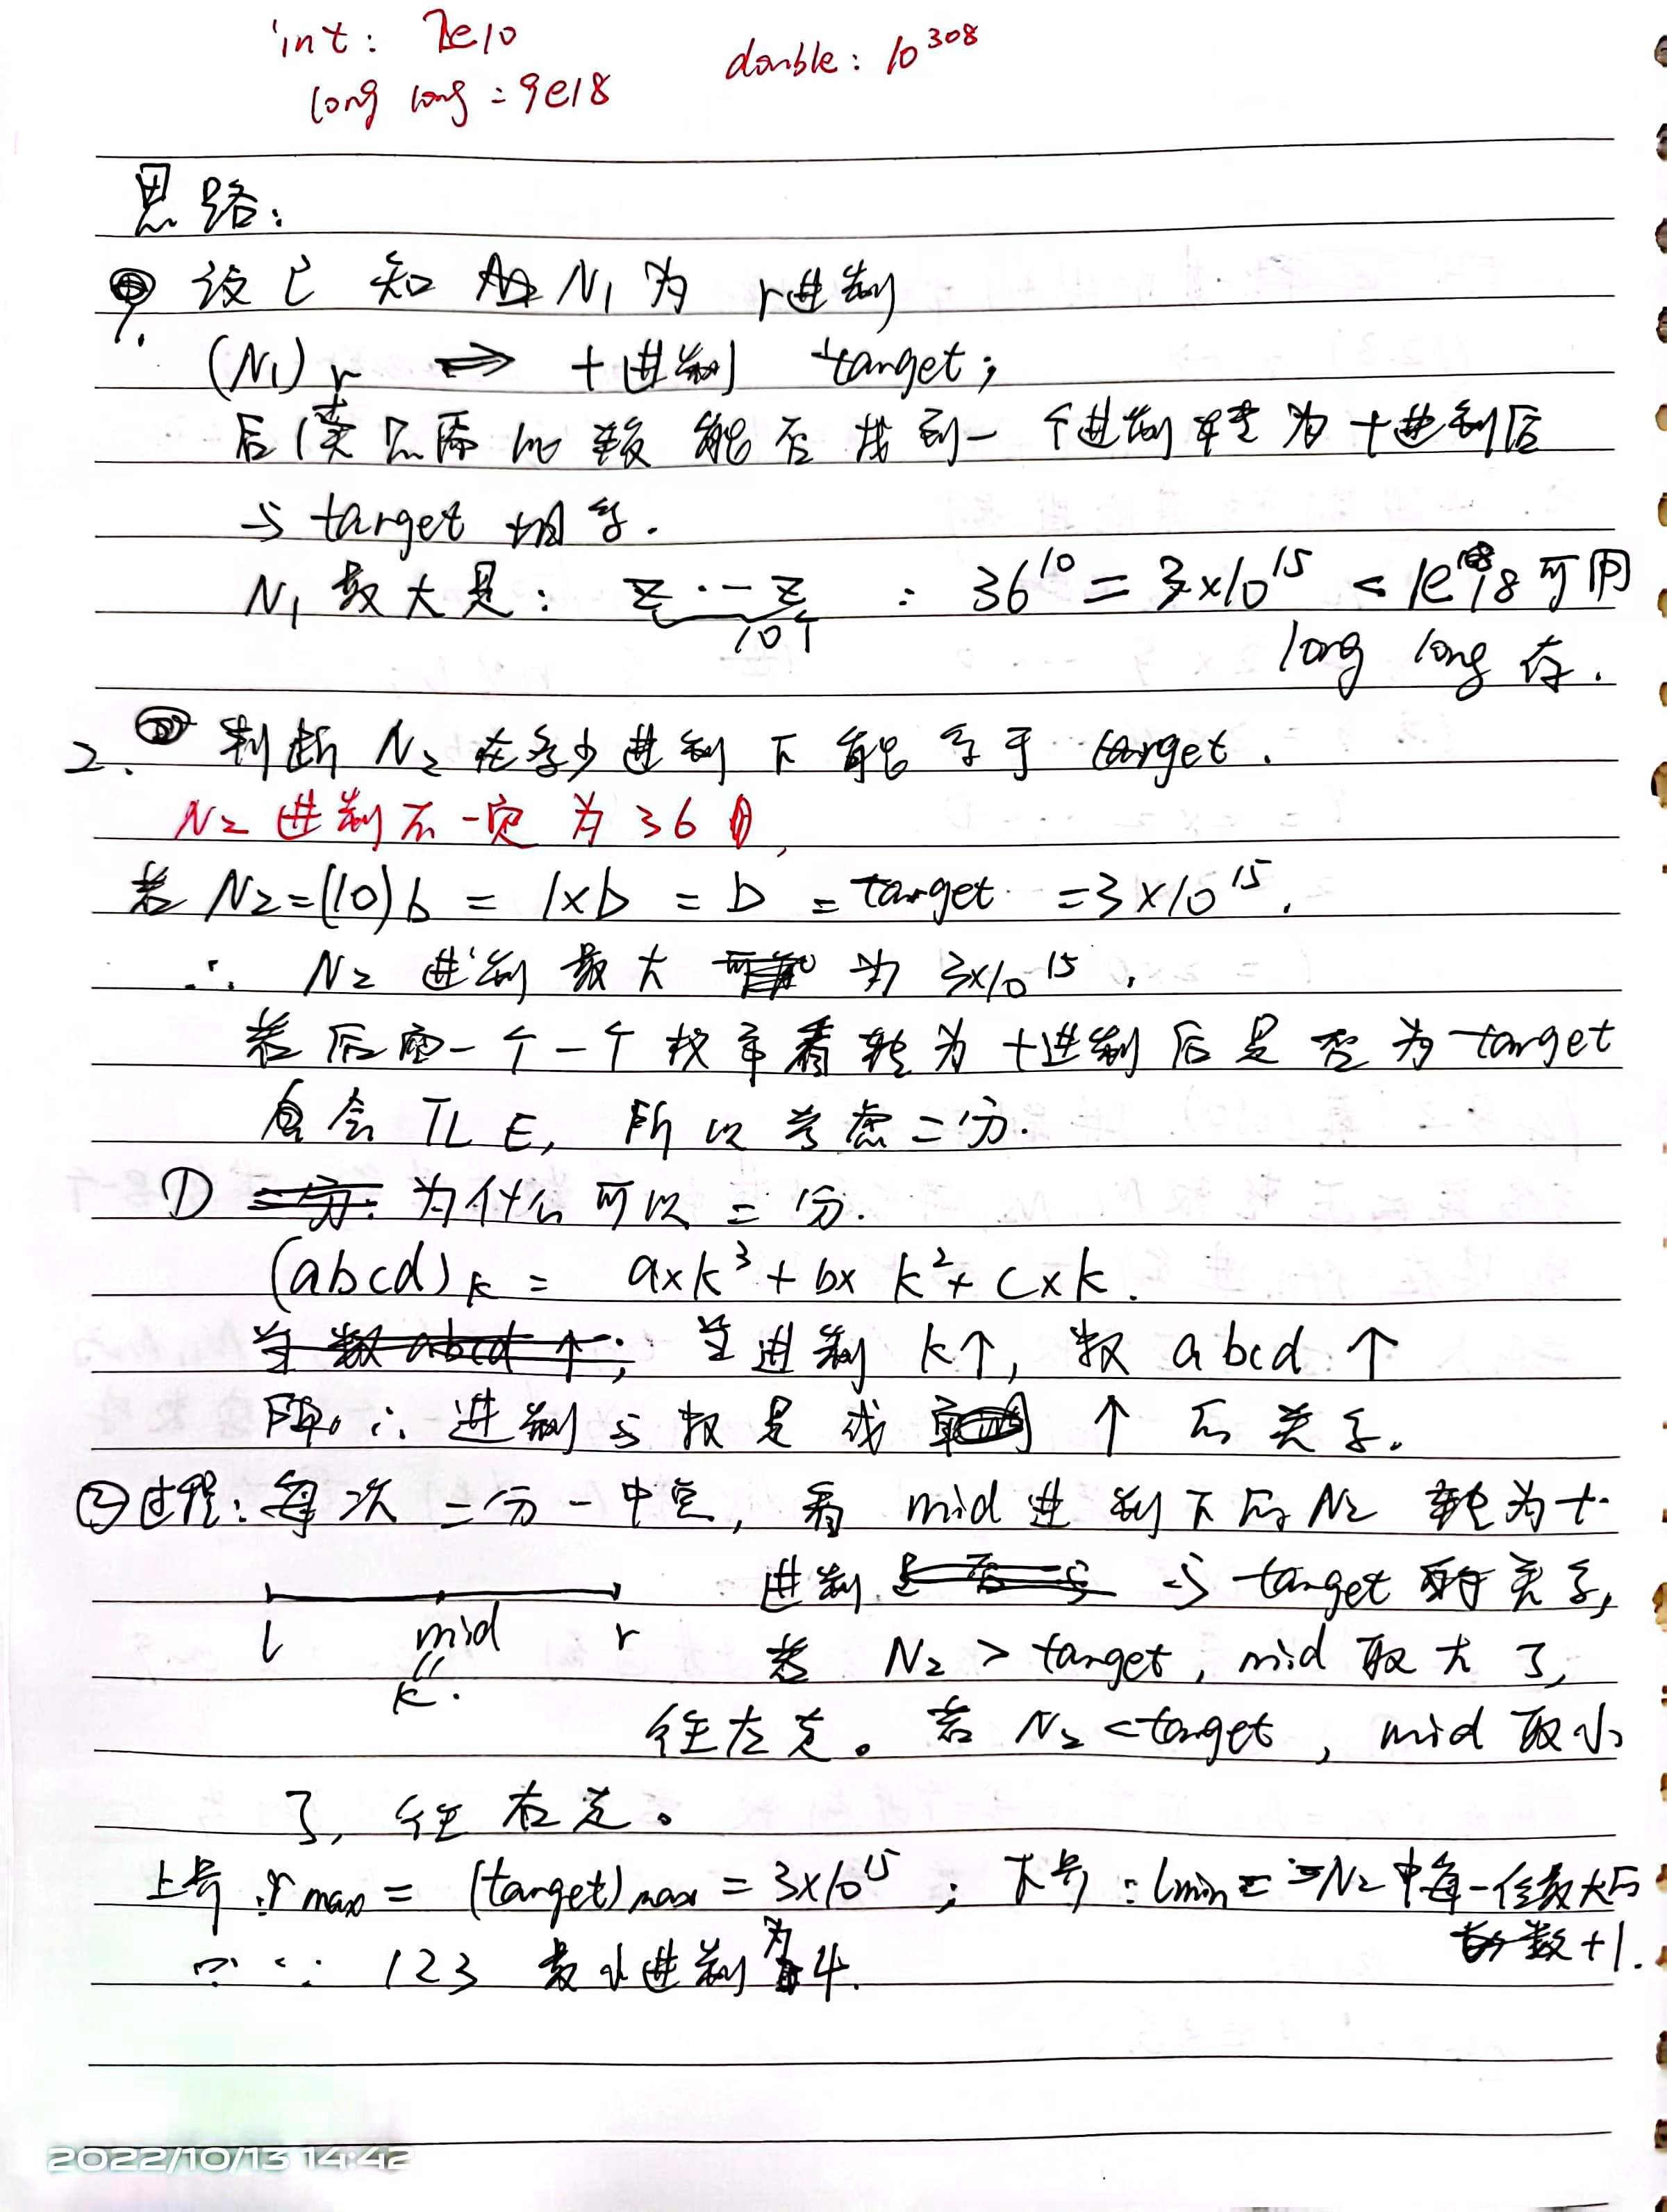 int: 2e10
long long: 9e18
double: 10^308
思路:
1. 设已知 N1 为 r进制
(N1)r ⇒ 十进制 target;
后续只需此数能否找到一个进制转为十进制后
与 target 相等.
N1 最大是: z··-z 10个 : 36^10 = 3×10^15 < 1e18 可用
long long 存.
2. 判断 N2 在多少进制下能等于 target.
N2 进制不一定为 36
若 N2=(10)b = 1×b = b = target = 3×10^15.
∴ N2 进制最大 为 3×10^15.
若后面一个一个枚举看转为十进制后是否为 target
会 TLE, 所以考虑二分.
① 为什么可以二分.
(abcd)k = a×k^3 + b×k^2 + c×k.
当进制 k↑, 数 abcd ↑
∴ 进制与数是成单调 ↑ 的关系.
②过程: 每次二分一中点, 看 mid 进制下的 N2 转为十
进制 与 target 的关系,
l mid r
若 N2 > target, mid 取大了,
k.
往左走。若 N2 < target, mid 取小
了, 往右走。
上界: rmax = (target)max = 3×10^15; 下界: lmin = N2 中每一位最大的
数+1.
∵ 123 最小进制为 4.
2022/10/13 14:42